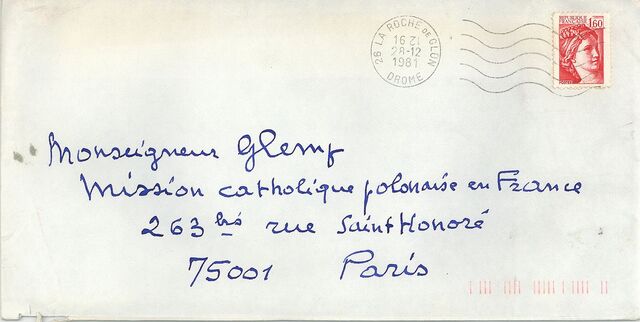 26 LA ROCHE DE GLUN
16 H
28-12
1981
DROME
REPUBLIQUE FRANCAISE
1,60
POSTES
Monseigneur Glemp
Mission catholique polonaise en France
263 bis rue Saint Honoré
75001 Paris